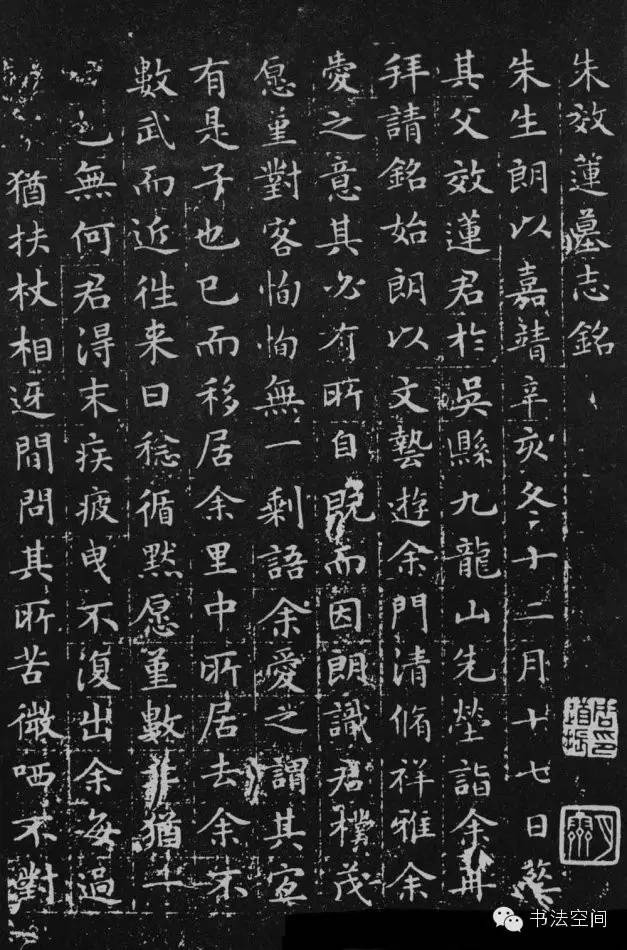 朱效蓮墓志銘
朱生朗以嘉靖辛亥冬十二月十七日葬
其父效蓮君於吳縣九龍山先塋詣余再
拜請銘始朗以文藝遊余門清脩祥雅余
愛之意其必有所自既而因朗識君樸茂
愿重對客恂恂無一剩語余愛之謂其宜
有是子也已而移居余里中所居去余不
數武而近往来日稔循默愿重數年猶一
也無何君得末疾疲曳不復出余每過
猶扶杖相迓間問其所苦微哂不對
周印道振
书法空间